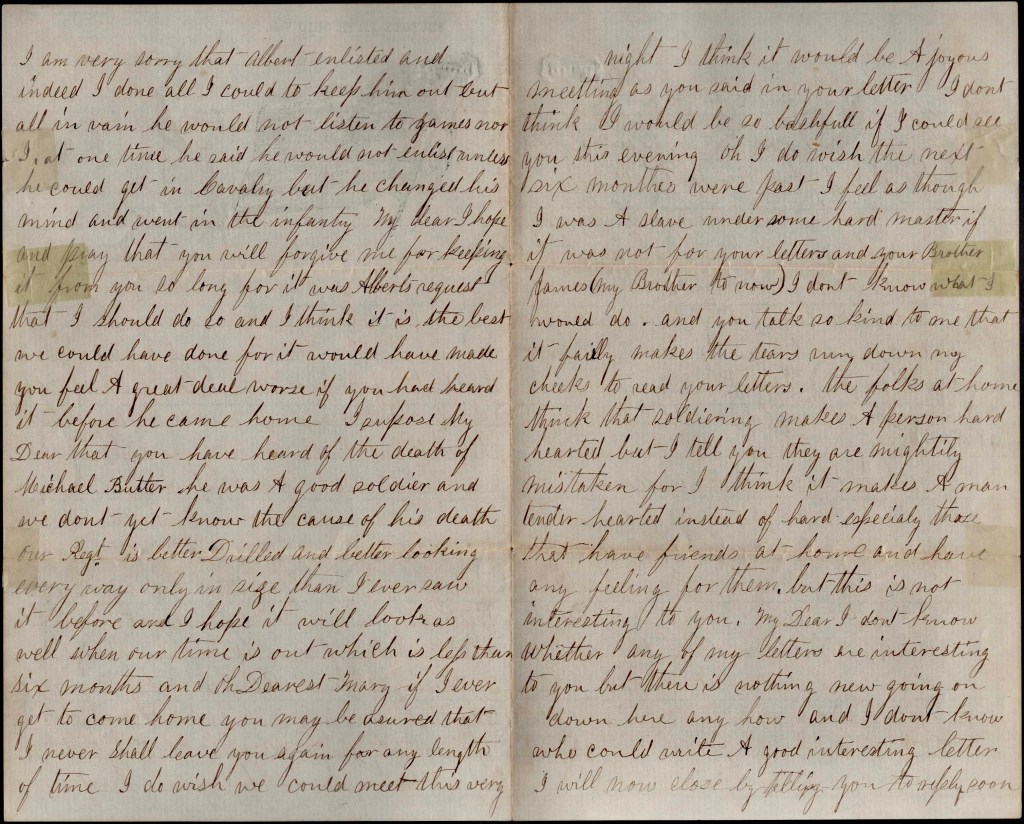 I am very sorry that Albert enlisted and
indeed I done all I could to keep him out but
all in vain he would not listen to James nor
I. at one time he said he would not enlist unless
he could get in Cavalry but he changed his
mind and went in the infantry My dear I hope
and pray that you will forgive me for keeping
it from you so long for it was Alberts request
that I should do so and I think it is the best
we could have done for it would have made
you feel A great deal worse if you had heard
it before he came home I supose My
Dear that you have heard of the death of
Michael Butter he was A good soldier and
we dont yet know the cause of his death
our Regt. is better Drilled and better looking
every way only in size than I ever saw
it before and I hope it will look as
well when our time is out which is less than
six months and oh Dearest Mary if I ever
get to come home you may be asured that
I never shall leave you again for any length
of time I do wish we could meet this very
night I think it would be A joyous
meetting as you said in your letter I dont
think I would be so bashfull if I could see
you this evening oh I do wish the next
six monthes were past I feel as though
I was A slave under some hard master if
it was not for your letters and your Brother
James (my Brother to now) I dont know what I
would do. and you talk so kind to me that
it fairly makes the tears run down my
cheeks to read your letters. the folks at home
think that soldiering makes A person hard
hearted but I tell you they are mightily
mistaken for I think it makes A man
tender hearted instead of hard especialy those
that have friends at home and have
any feeling for them. but this is not
interesting to you. My Dear I dont know
whether any of my letters are interesting
to you but there is nothing new going on
down here any how and I dont know
who could write A good interesting letter
I will now close by telling you to reply soon